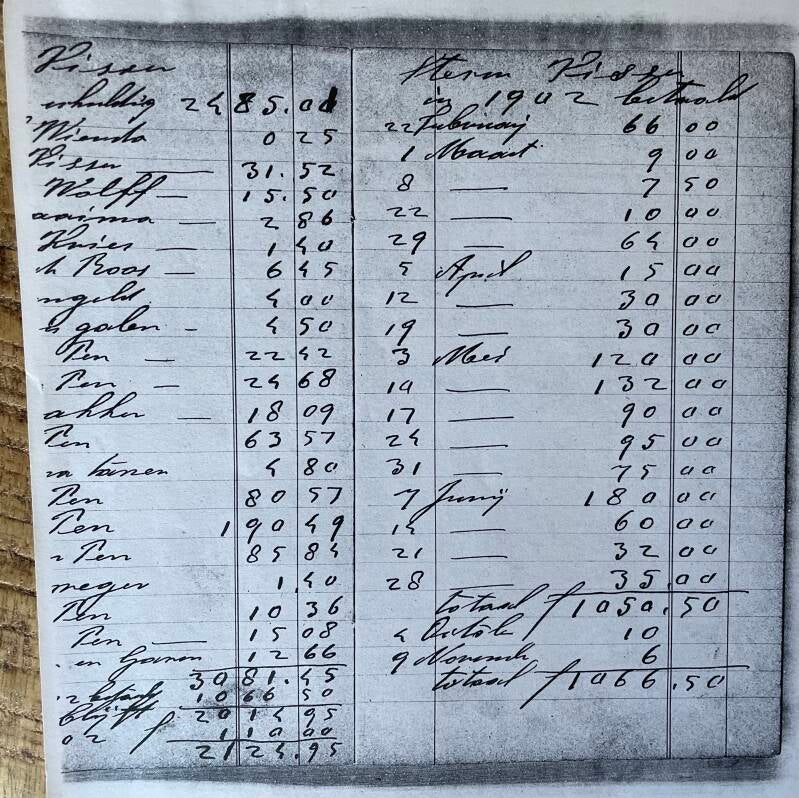 Visser
schuldig 2485.01
Wienda 0 25
Visser — 31.52
Wolff — 15.50
aaima — 2 86
Kries — 1 40
h Roos — 6 45
ngeld 4 00
galen — 4 50
Pen — 22 42
Pen — 24 68
akker — 18 09
Pen 63 57
4 80
Pen 80 57
Pen 190 49
Pen 85 84
meger 1.40
Pen 10 36
Pen — 15 08
en Garen 12 66
3081.45
1066 50
blijft 2014 95
02 f 110 00
2124.95
Harm Visser
in 1902 betaald
22 Februarij 66 00
1 Maart 9 00
8 — 7 50
22 — 10 00
29 — 64 00
5 April 15 00
12 — 30 00
19 — 30 00
3 Mei 120 00
10 — 132 00
17 — 90 00
24 — 95 00
31 — 75 00
7 Junij 180 00
14 — 60 00
21 — 32 00
28 — 35.00
totaal f 1050.50
4 Octob 10
9 Novemb 6
totaal f 1066.50